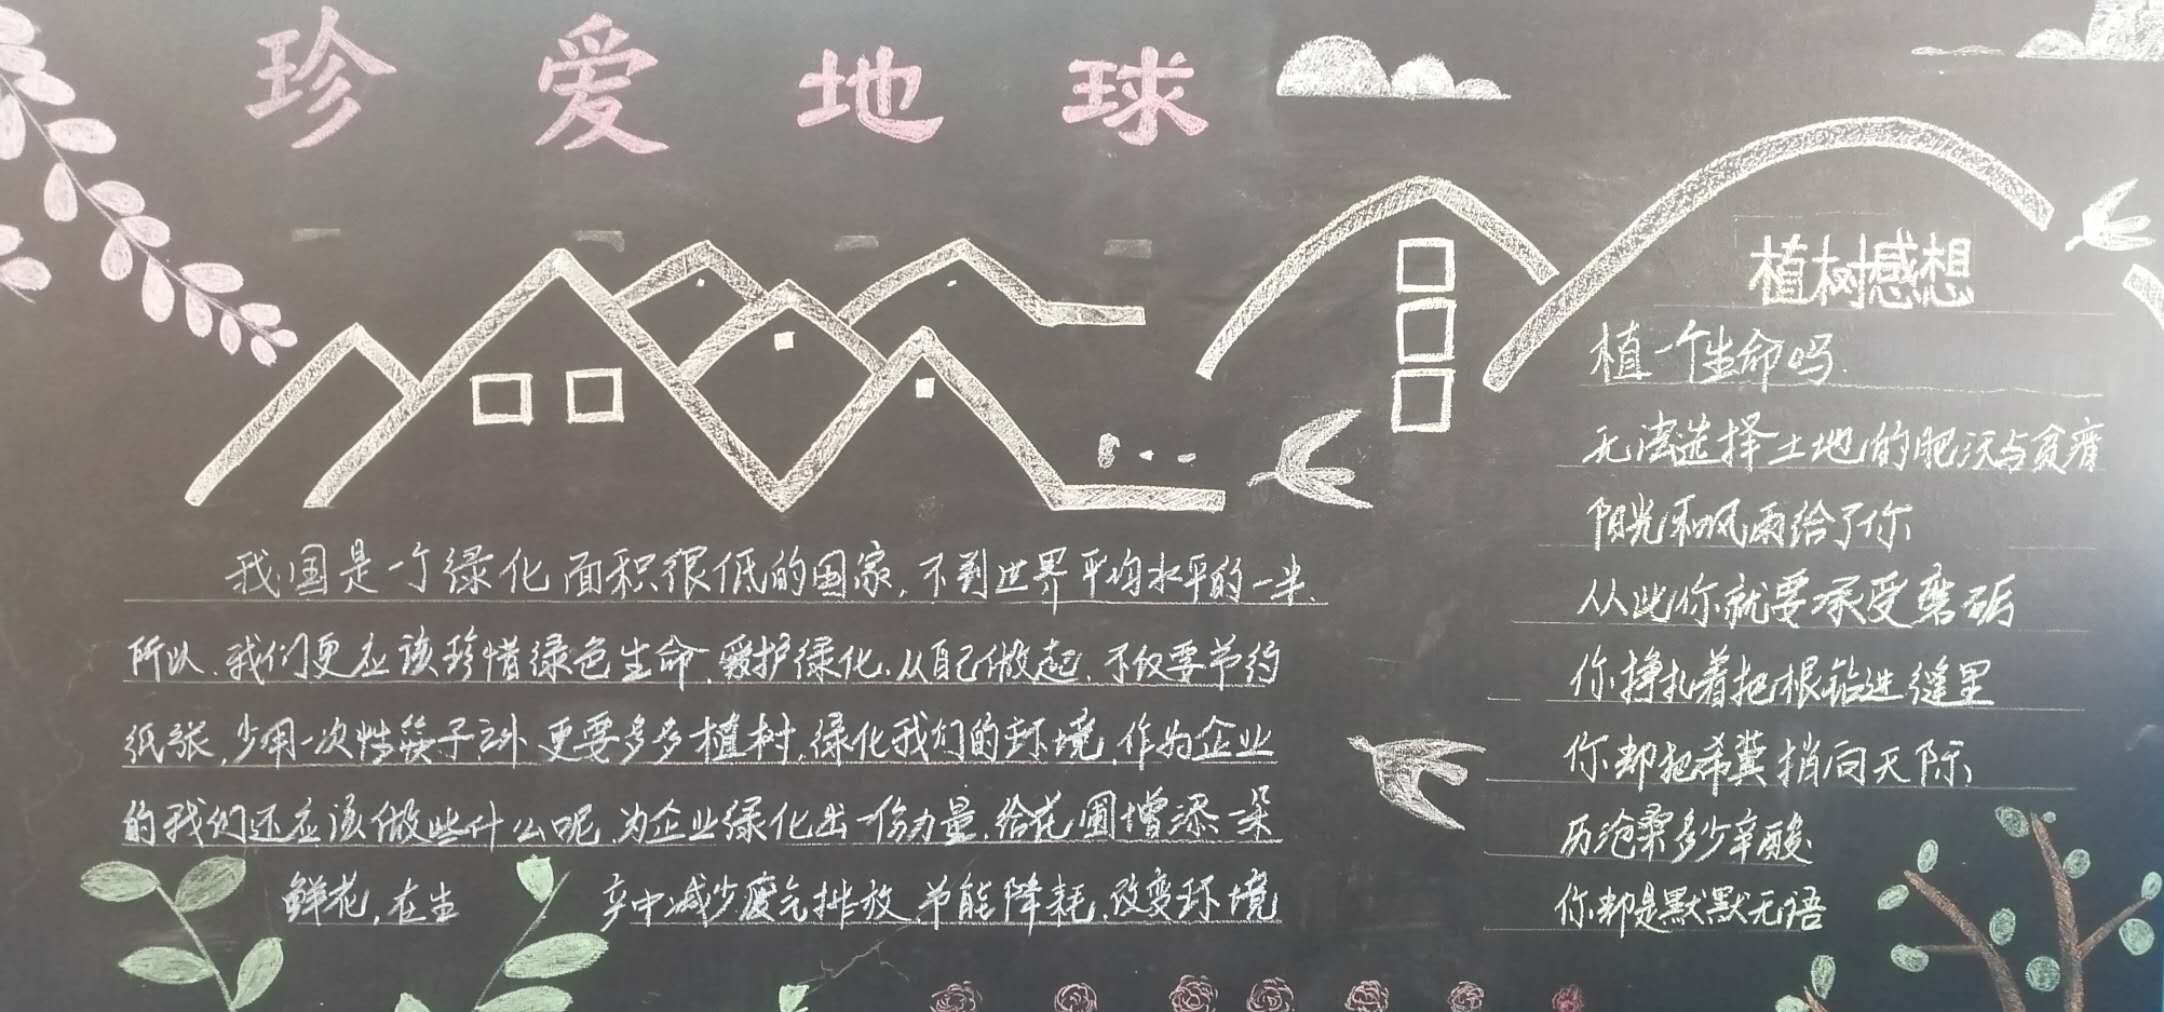 珍爱地球
我国是一个绿化面积很低的国家,不到世界平均水平的一半.
所以.我们更应该珍惜绿色生命.爱护绿化.从自己做起.不仅要节约
纸张,少用一次性筷子外.更要多多植树.绿化我们的环境.作为企业
的我们还应该做些什么呢.为企业绿化出一份力量.给花圃增添一朵
鲜花,在生产中减少废气排放.节能降耗.改变环境
植树感想
植一个生命吗.
无法选择土地的肥沃与贫瘠
阳光和风雨给了你
从此你就要承受磨砺
你挣扎着把根钻进缝里
你却把希冀捎向天际
历沧桑多少辛酸
你却是默默无语